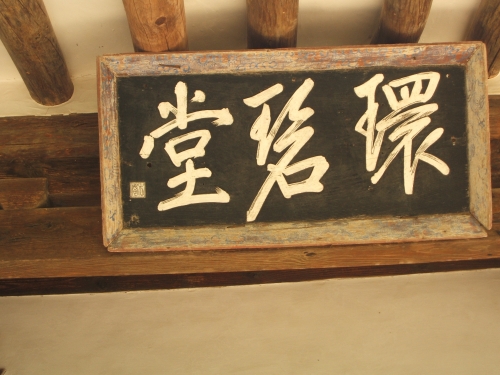 環碧堂